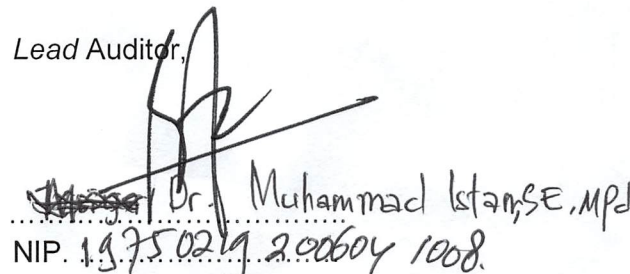 Lead Auditor,
Dr. Muhammad Istan, SE, MPd
NIP. 19750219 200604 1008.